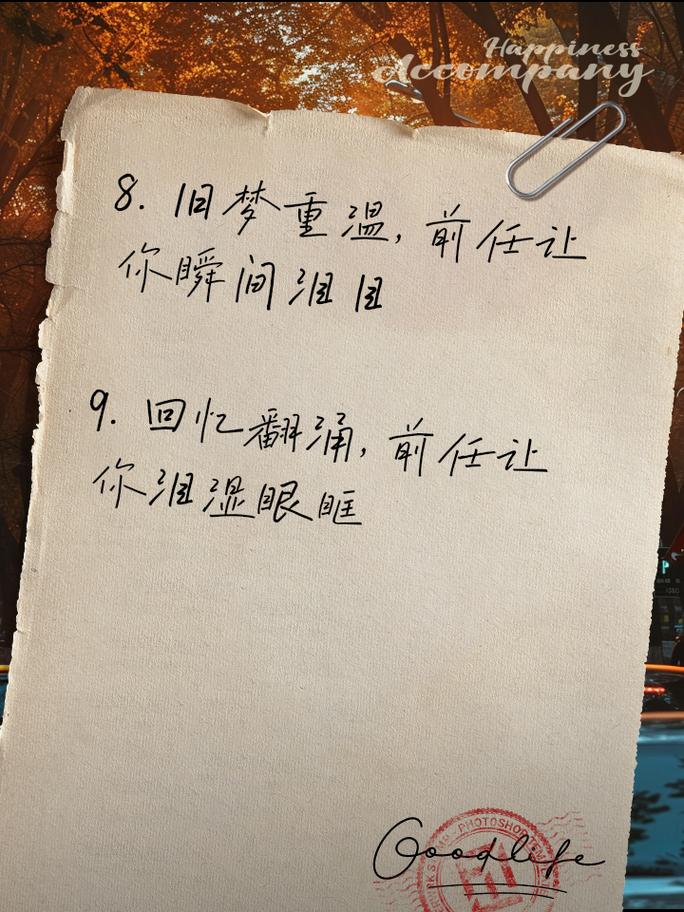 Happiness
Accompany
8. 旧梦重温, 前任让
你瞬间泪目
9. 回忆翻涌, 前任让
你泪湿眼眶
Goodlife
PHOTOSHOP